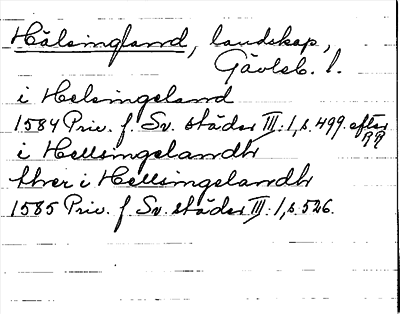 Hälsingland, landskap,
Gävleb. l.
i Helsingeland
1584 Priv. f. Sv. städer III: 1, s. 499. efter
RR
i Hellsingelandh
thver i Hellsingelandh
1585 Priv. f Sv. städer III: 1, s. 526.